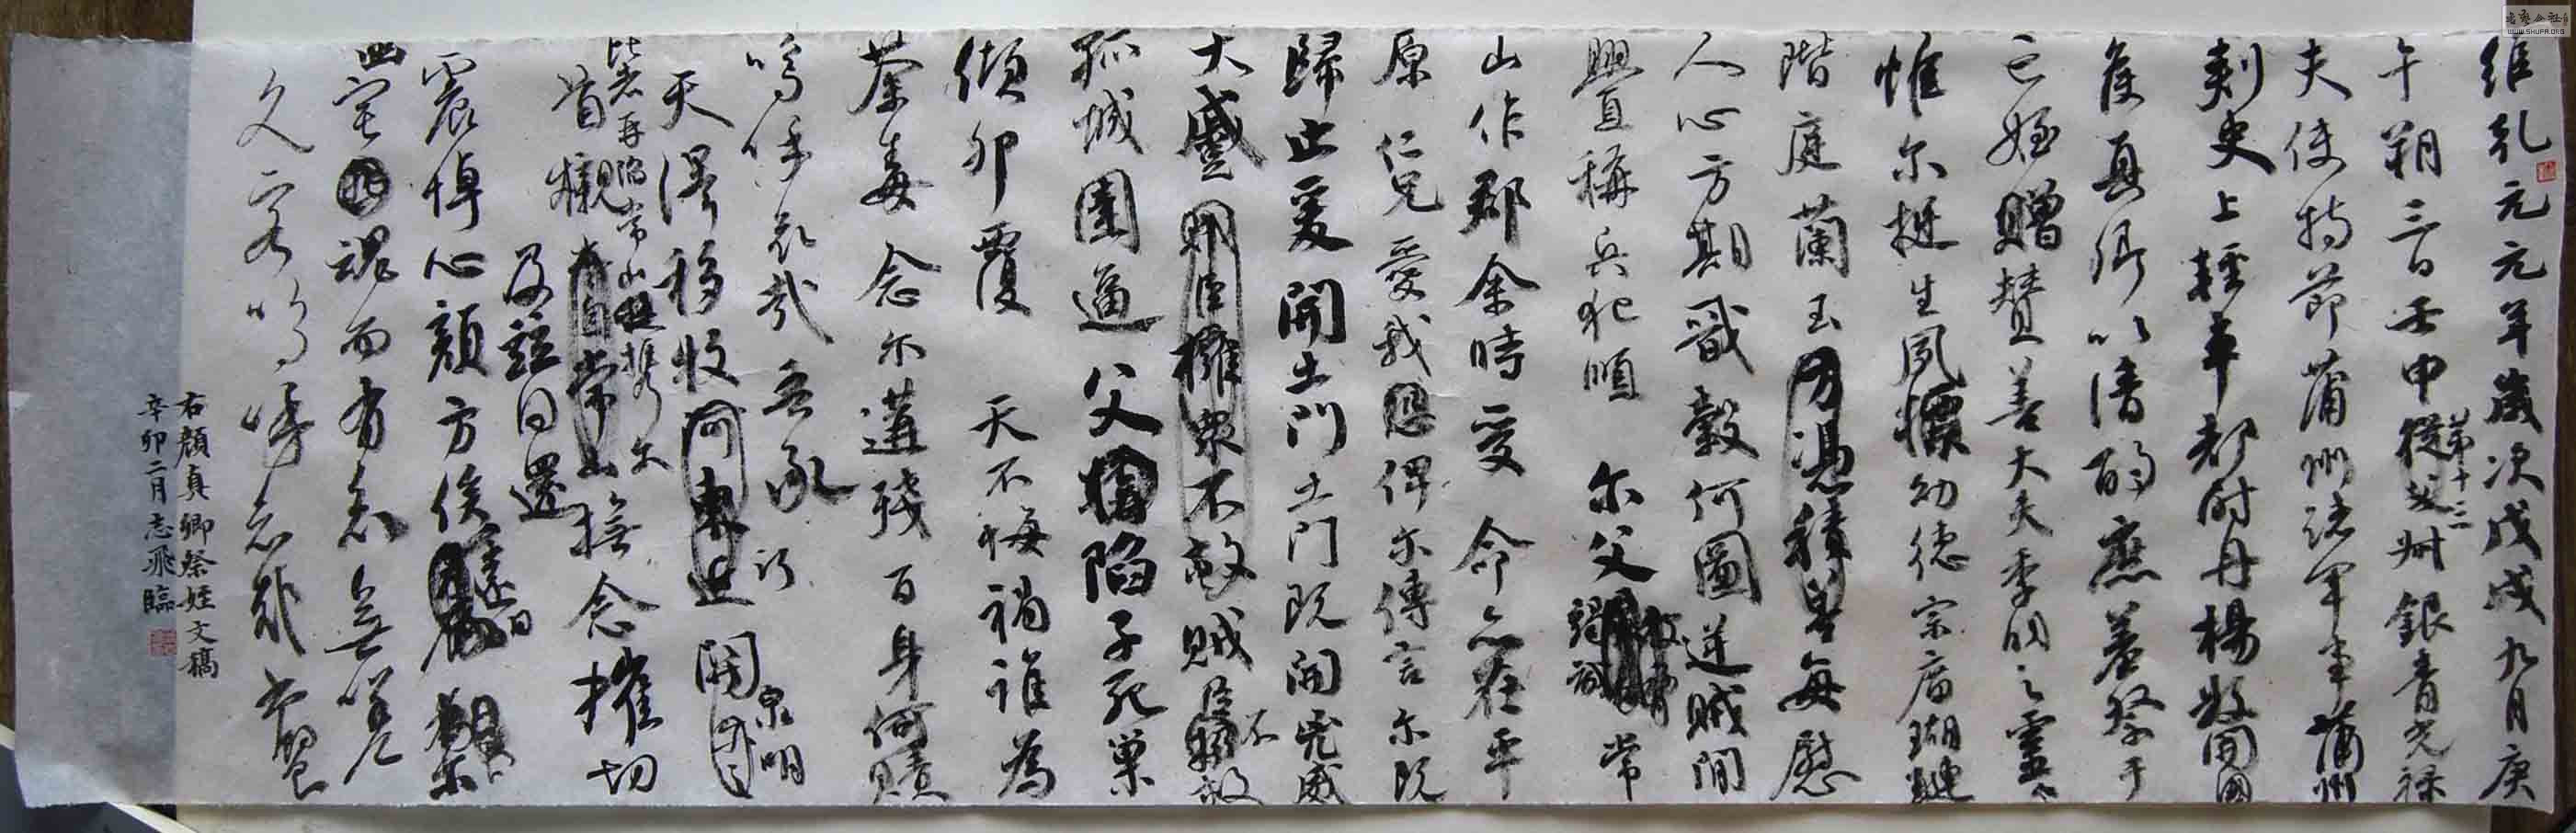 維乾元元年歲次戊戌九月庚
午朔三日壬申
第十三
從父
銀青光祿
夫使持節蒲州諸軍事蒲州
刺史上輕車都尉丹楊
開國
侯真卿以清酌庶羞祭于
亡姪贈贊善大夫季明之靈
惟尔挺生夙標幼德宗廟瑚璉
階庭蘭玉
方憑積善
每慰
人心方期戩穀何圖逆賊間
釁稱兵犯順
尔父
竭誠
常
山作郡余時受
命亦在平
原
仁兄愛我
恐
俾尔傳言尔既
歸止爰開土門土門既開兇威
大蹙
賊臣擁眾不救
賊臣
不
救
孤城圍逼父
陷子死巢
傾卵覆
天不悔禍誰為
荼毒念尔遘殘百身何贖
嗚呼哀哉吾承
天澤移牧
河東近
河關
泉明
比者再陷常山
攜尔
首櫬
及
自常山
撫念摧切
及茲同還
震悼心顏方俟
遠日
卜
尔
幽宅
魂而有知無嗟
久客嗚呼哀哉尚饗
右顏真卿祭姪文稿
辛卯二月志飛臨
WWW.SHUFA.ORG